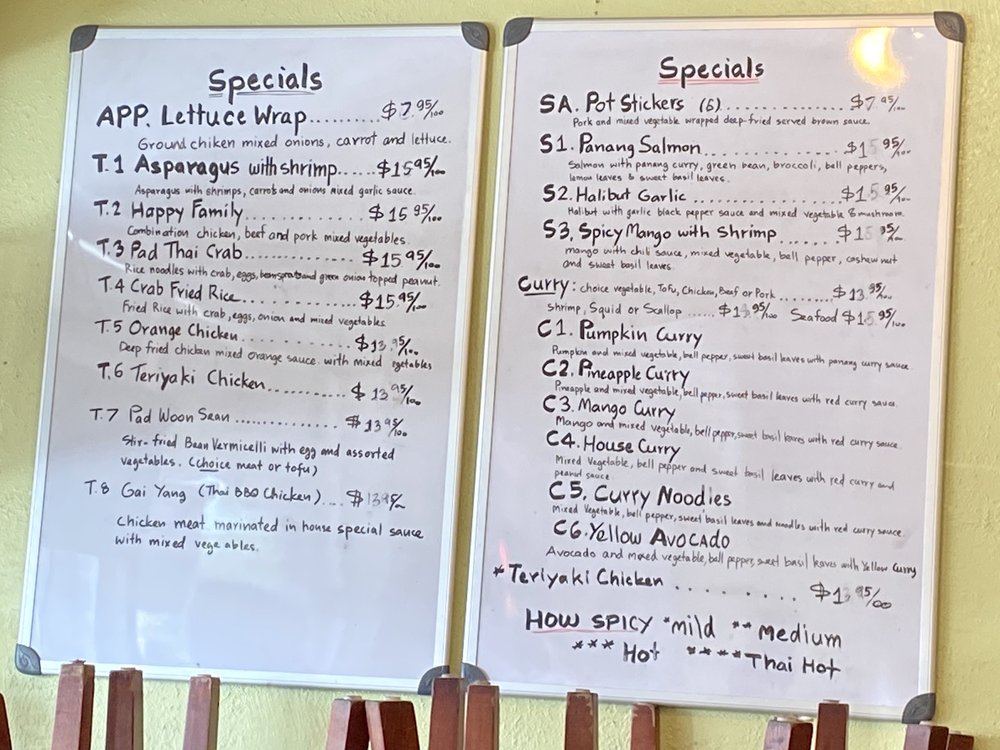 Specials
APP. Lettuce Wrap......... $7.95/100
Ground chiken mixed onions, carrot and lettuce.
T.1 Asparagus with shrimp..... $15 95/100
Asparagus with shrimps, carrot and onions mixed garlic sauce.
T.2 Happy Family............ $15 95/100
Combination chicken, beef and pork mixed vegetables.
T.3 Pad Thai Crab............ $15 95/100
Rice noodles with crab, eggs, beansprats and green onion topped peanut.
T.4 Crab Fried Rice............ $15.95/100
Fried Rice with crab, eggs, onion and mixed vegetables
T.5 Orange Chicken............ $13.95/100
Deep fried chicken mixed orange sauce. with mixed egetables
T.6 Teriyaki Chicken......... $13 95/100
T.7 Pad Woon Sean ............... $13 95/100
Stir-fried Bean Vermicelli with egg and assorted
vegetables. (choice meat or tofu)
T.8 Gai Yang (Thai BBQ Chicken).... $13 95/100
Chicken meat marinated in house special sauce
with mixed vege ables.
Specials
SA. Pot Stickers (6)............... $7.95/100
Pork and mixed vegetable wrapped deep-fried served brown sauce.
S1. Panang Salmon............... $15 95/100
Salmon with panang curry, green bean, broccoli, bell peppers,
lemon leaves & sweet basil leaves.
S2. Halibut Garlic............... $15 95/100
Halibut with garlic black pepper sauce and mixed vegetable & mushroom.
S3. Spicy Mango with Shrimp....... $15 95/100
mango with chili sauce, mixed vegetable, bell pepper, cashew nut
and sweet basil leaves.
Curry: choice vegetable, Tofu, Chicken, Beef or Pork.......... $13.95/100
Shrimp, Squid or Scallop ...... $ 95/100 Seafood $15.95/100
C1. Pumpkin Curry
Pumpkin and mixed vegetable, bell pepper, sweet basil leaves with panang curry sauce.
C2. Pineapple Curry
Pineapple and mixed vegetable, bell pepper, sweet basil leaves with red curry sauce.
C3. Mango Curry
Mango and mixed vegetable, bell pepper, sweet basil leaves with red curry sauce.
C4. House Curry
Mixed Vegetable, bell pepper and sweet basil leaves with red curry and
peanut sauce.
C5. Curry Noodles
Mixed Vegetable, bell pepper, sweet basil leaves and noodles with red curry sauce.
C6. Yellow Avocado
Avocado and mixed vegetable, bell pepper, sweet basil leaves with Yellow Curry
*Teriyaki Chicken . . . . . . . $13 95/00
HOW SPICY *mild ** Medium
*** Hot ****Thai Hot